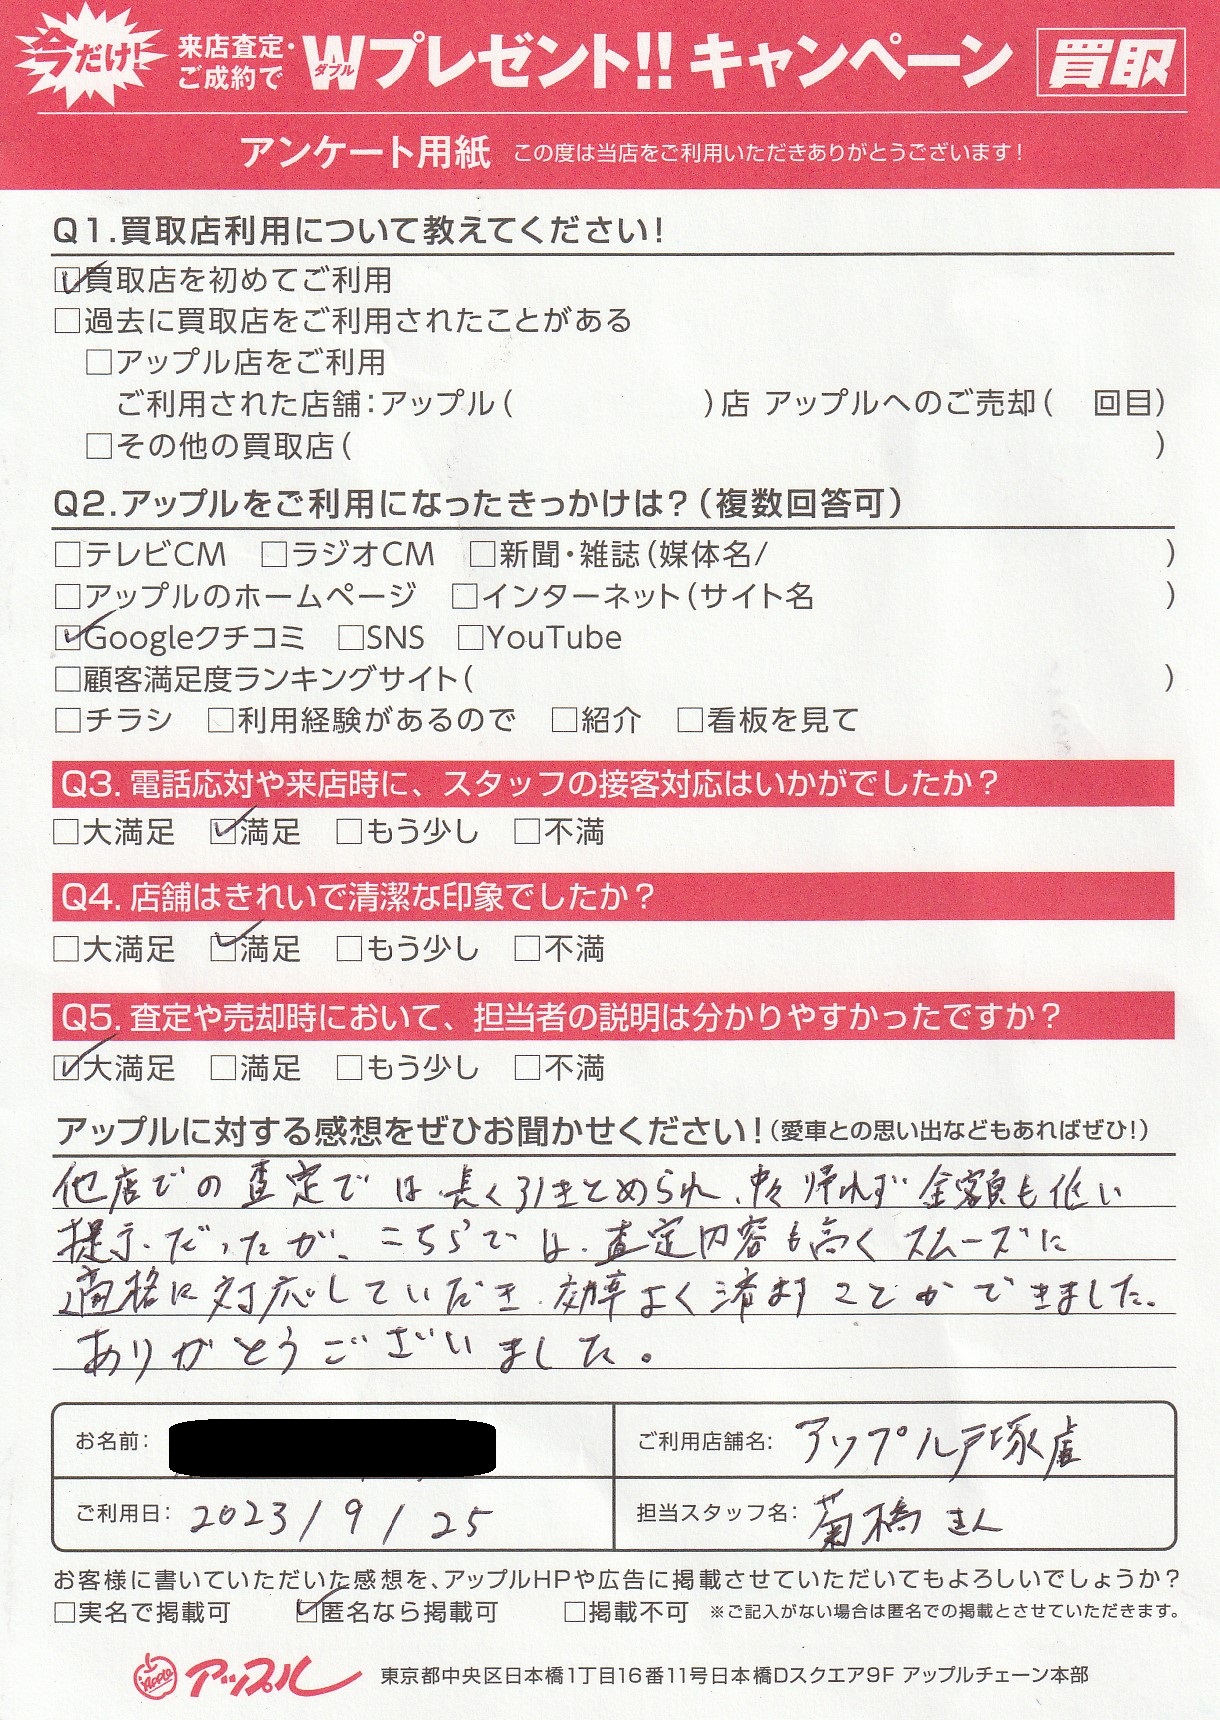 今だけ!
来店査定・
ご成約で
Wプレゼント!!キャンペーン 買取
ダブル
アンケート用紙 この度は当店をご利用いただきありがとうございます!
Q1.買取店利用について教えてください!
☑買取店を初めてご利用
□過去に買取店をご利用されたことがある
□アップル店をご利用
ご利用された店舗:アップル( )店 アップルへのご売却( 回目)
□その他の買取店( )
Q2.アップルをご利用になったきっかけは?(複数回答可)
□テレビCM □ラジオCM □新聞・雑誌(媒体名/ )
□アップルのホームページ □インターネット(サイト名 )
☑Googleクチコミ □SNS □YouTube
□顧客満足度ランキングサイト( )
□チラシ □利用経験があるので □紹介 □看板を見て
Q3. 電話応対や来店時に、スタッフの接客対応はいかがでしたか?
□大満足 ☑満足 □もう少し □不満
Q4. 店舗はきれいで清潔な印象でしたか?
□大満足 ☑満足 □もう少し □不満
Q5. 査定や売却時において、担当者の説明は分かりやすかったですか?
☑大満足 □満足 □もう少し □不満
アップルに対する感想をぜひお聞かせください!(愛車との思い出などもあればぜひ!)
他店での査定では長く引きとめられ、中々帰れず金額も低い
提示だったが、こちらでは、査定内容も高くスムーズに
適格に対応していただき効率よく済ますことができました。
ありがとうございました。
お名前: ご利用店舗名: アップル戸塚店
ご利用日: 2023/9/25 担当スタッフ名: 菊橋さん
お客様に書いていただいた感想を、アップルHPや広告に掲載させていただいてもよろしいでしょうか?
□実名で掲載可 ☑匿名なら掲載可 □掲載不可 ※ご記入がない場合は匿名での掲載とさせていただきます。
Apple アップル 東京都中央区日本橋1丁目16番11号日本橋Dスクエア9F アップルチェーン本部